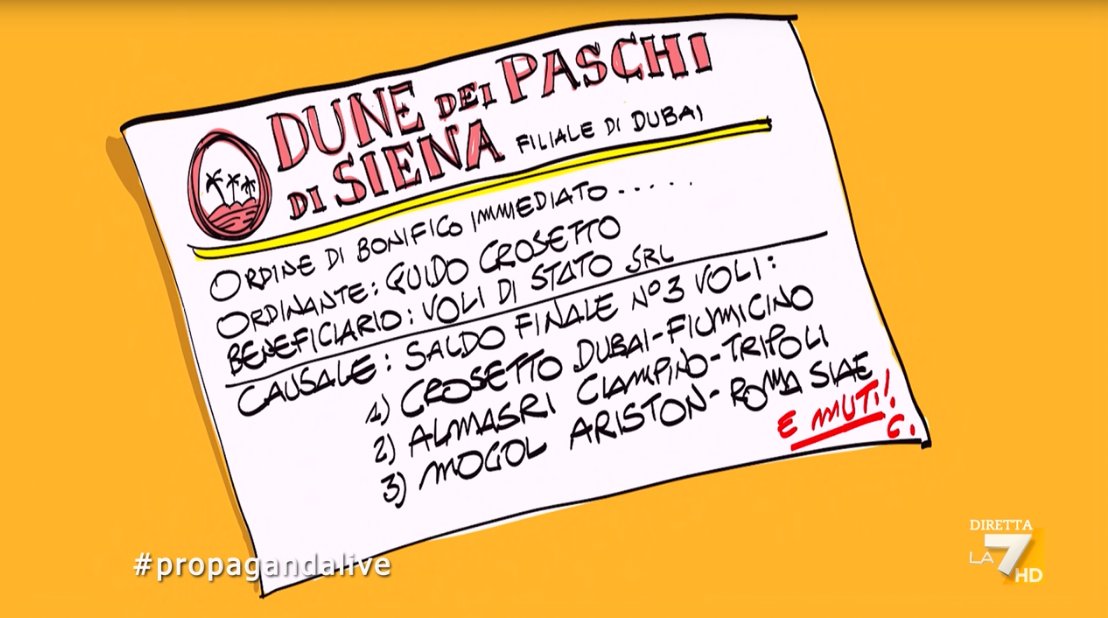 DUNE DEI PASCHI
DI SIENA FILIALE DI DUBAI
ORDINE DI BONIFICO IMMEDIATO .....
ORDINANTE: GUIDO CROSETTO
BENEFICIARIO: VOLI DI STATO SRL
CAUSALE: SALDO FINALE N°3 VOLI:
1) CROSETTO DUBAI-FIUMICINO
2) ALMASRI CIAMPINO-TRIPOLI
3) MOGOL ARISTON-ROMA SIAE
E MUTI!
C.
#propagandalive
DIRETTA
LA 7
HD